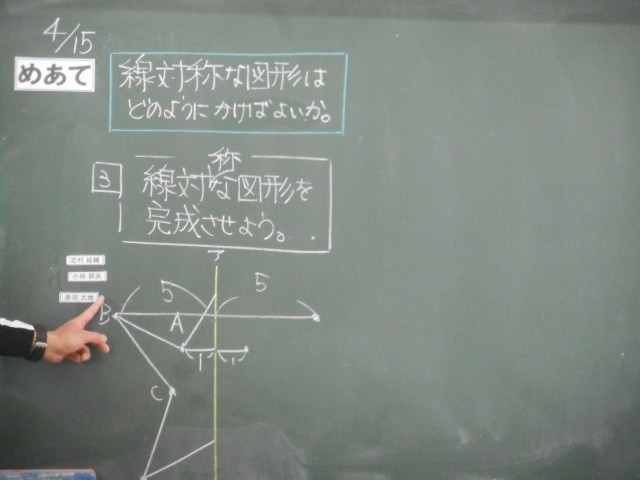 4/15
めあて
線対称な図形は
どのようにかけばよいか。
3
称
線対な図形を
完成させよう。
ア
5
5
B
A
1
1
C